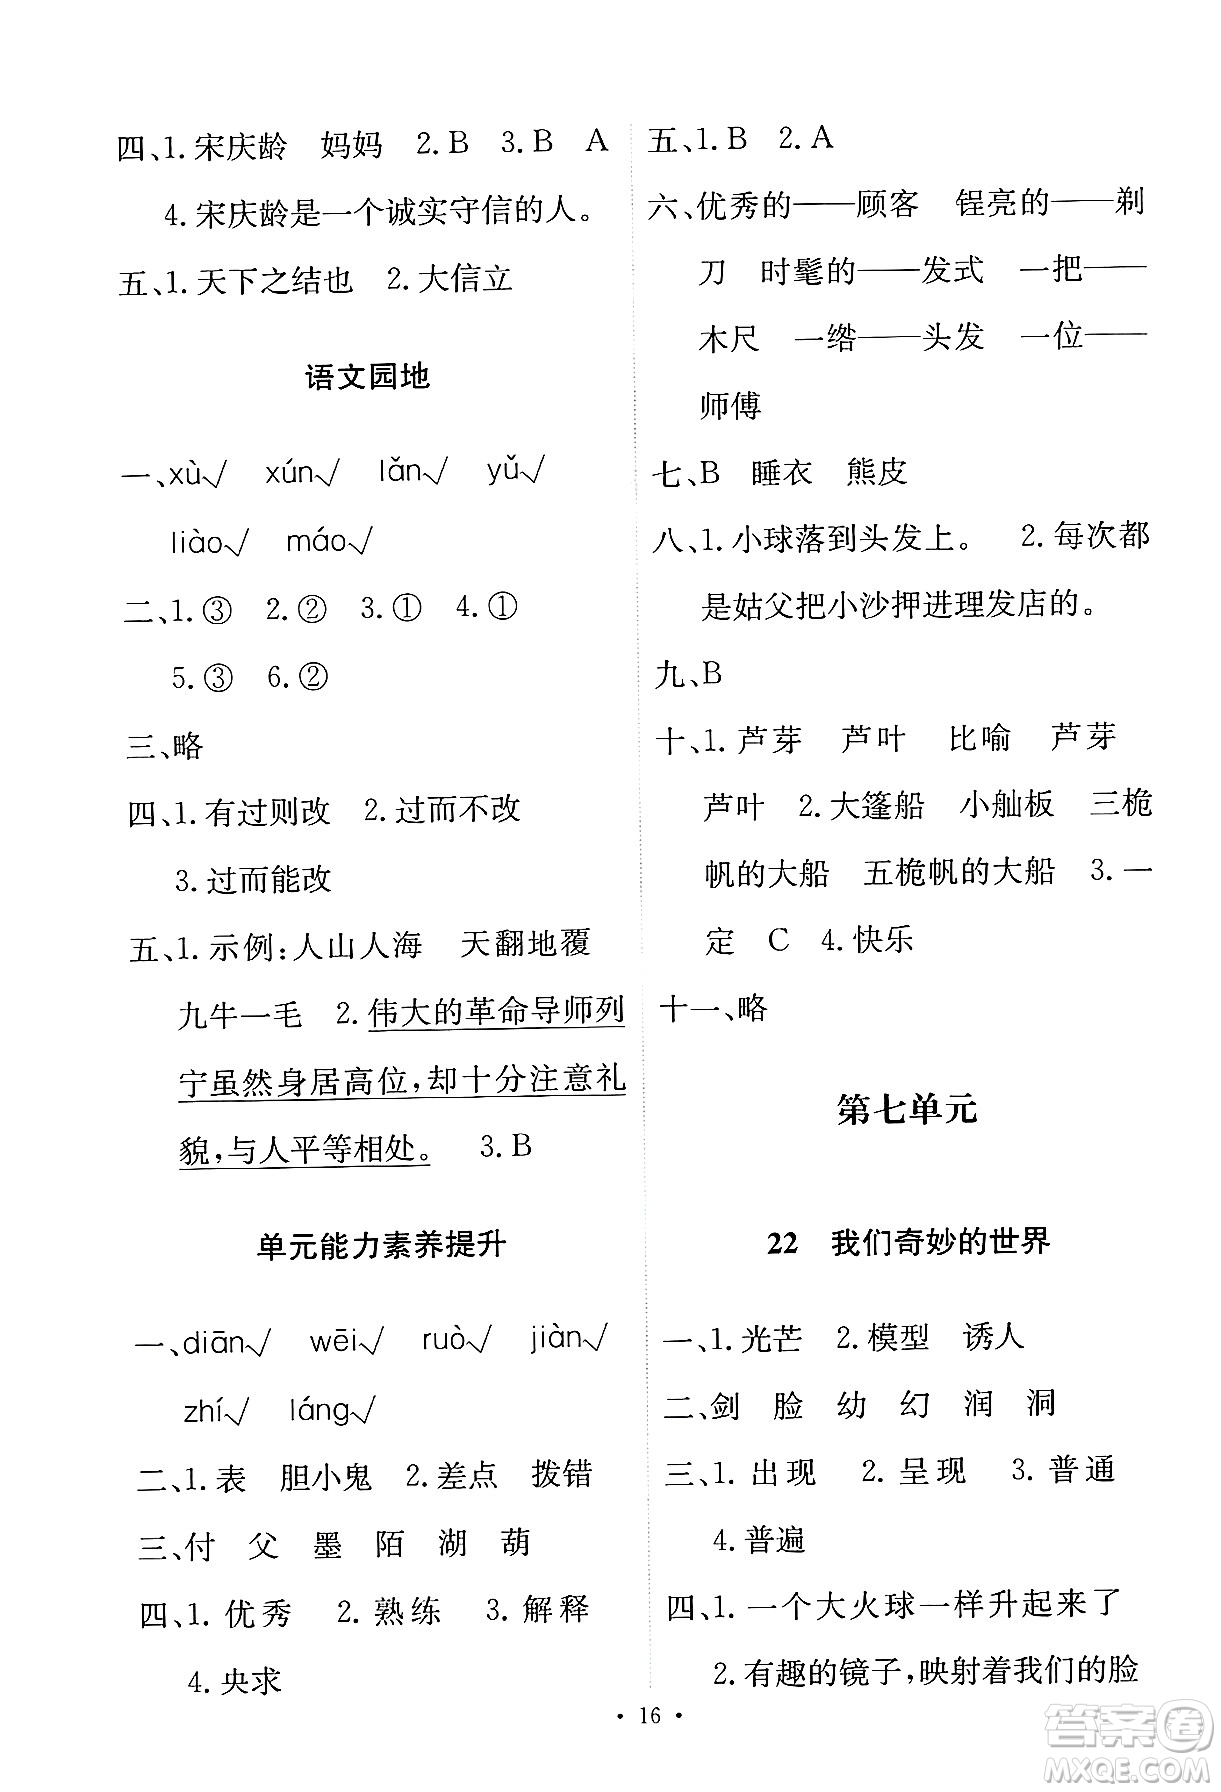 四、1. 宋庆龄　妈妈　2. B　3. B　A
4. 宋庆龄是一个诚实守信的人。
五、1. 天下之结也　2. 大信立
语文园地
一、xù√　xún√　lǎn√　yǔ√
liào√　máo√
二、1. ③　2. ②　3. ①　4. ①
5. ③　6. ②
三、略
四、1. 有过则改　2. 过而不改
3. 过而能改
五、1. 示例：人山人海　天翻地覆
九牛一毛　2. 伟大的革命导师列
宁虽然身居高位，却十分注意礼
貌，与人平等相处。　3. B
单元能力素养提升
一、diān√　wēi√　ruò√　jiàn√
zhí√　láng√
二、1. 表　胆小鬼　2. 差点　拨错
三、付　父　墨　陌　湖　葫
四、1. 优秀　2. 熟练　3. 解释
4. 央求
五、1. B　2. A
六、优秀的——顾客　锃亮的——剃
刀　时髦的——发式　一把——
木尺　一绺——头发　一位——
师傅
七、B　睡衣　熊皮
八、1. 小球落到头发上。　2. 每次都
是姑父把小沙押进理发店的。
九、B
十、1. 芦芽　芦叶　比喻　芦芽
芦叶　2. 大篷船　小舢板　三桅
帆的大船　五桅帆的大船　3. 一
定　C　4. 快乐
十一、略
第七单元
22　我们奇妙的世界
一、1. 光芒　2. 模型　诱人
二、剑　脸　幼　幻　润　洞
三、1. 出现　2. 呈现　3. 普通
4. 普遍
四、1. 一个大火球一样升起来了
2. 有趣的镜子，映射着我们的脸
• 16 •
答案圈
MXQE.COM